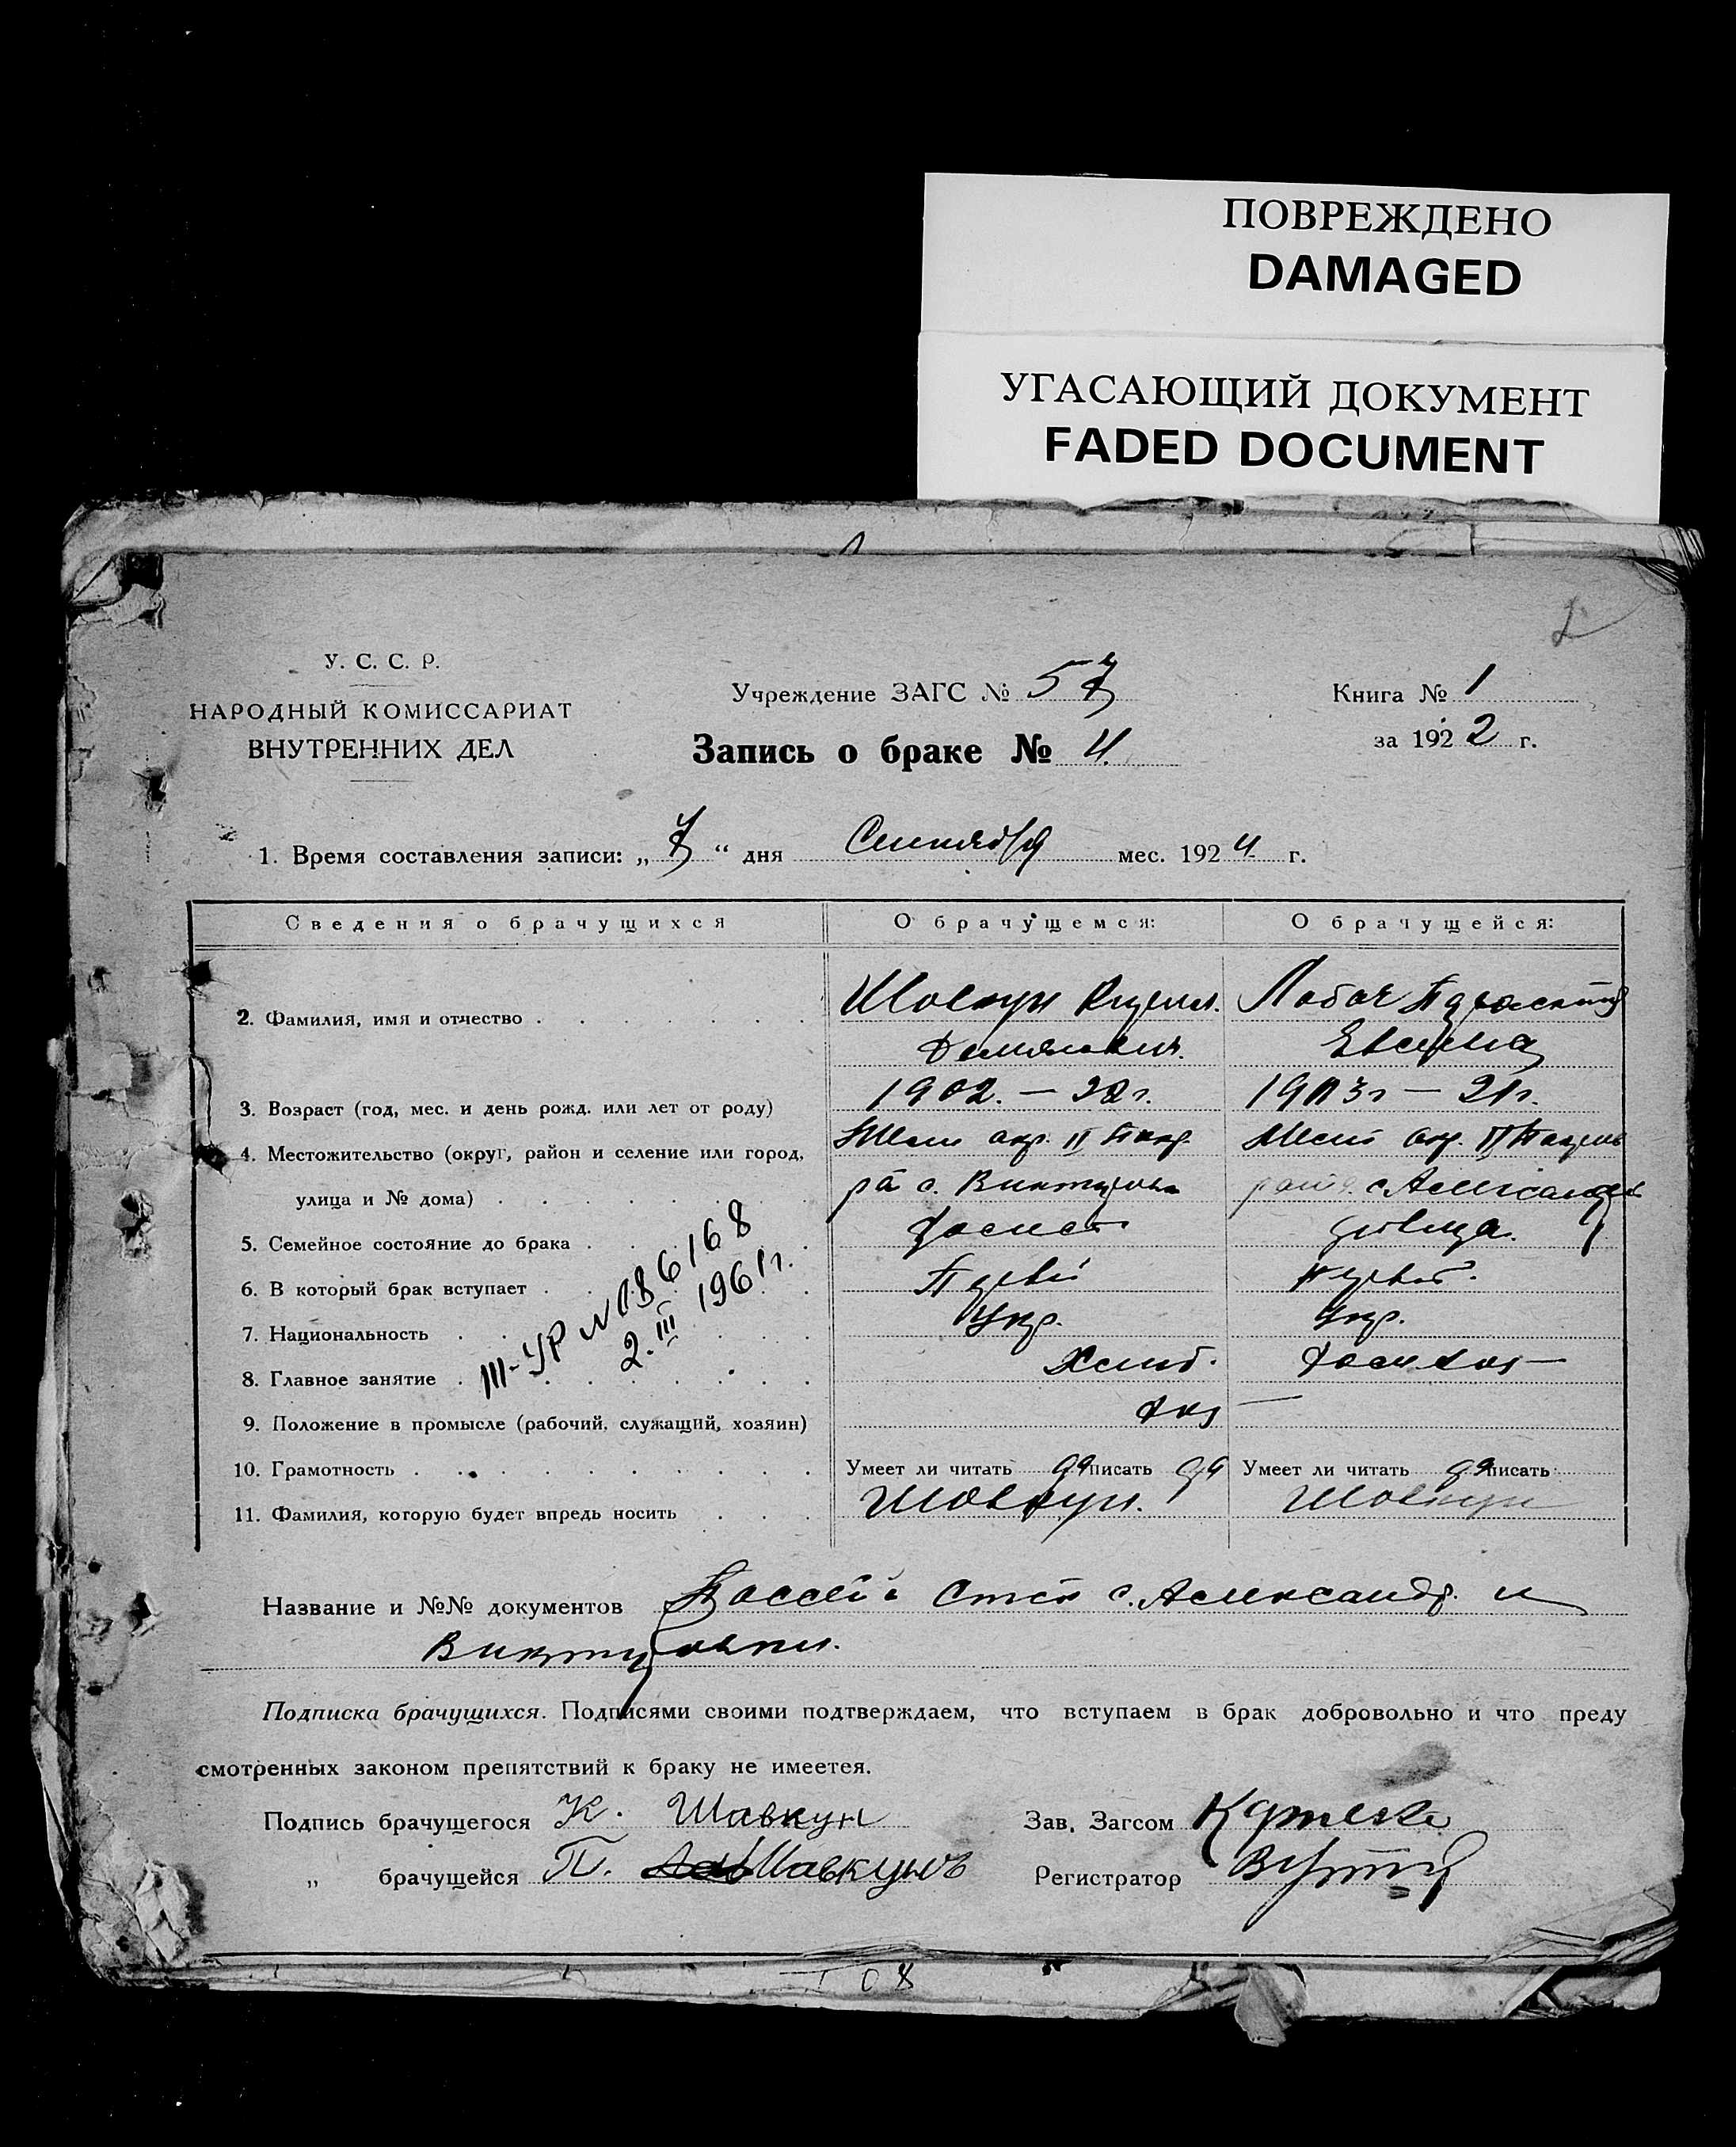 ПОВРЕЖДЕНО
DAMAGED
УГАСАЮЩИЙ ДОКУМЕНТ
FADED DOCUMENT
У. С. С. Р.
НАРОДНЫЙ КОМИССАРИАТ
ВНУТРЕННИХ ДЕЛ
Учреждение ЗАГС № 57
Книга № 1
за 1922 г.
Запись о браке № 4.
1. Время составления записи: „ “ дня Сентября мес. 1924 г.
Сведения о брачущихся О брачущемся: О брачущейся:
2. Фамилия, имя и отчество Шовкун Лобач
3. Возраст (год, мес. и день рожд. или лет от роду) 1902. — 22 г. 1903 г — 21 г.
4. Местожительство (округ, район и селение или город, окр. II окр. II
улица и № дома) с. с.
5. Семейное состояние до брака девица.
6. В который брак вступает Первый Первый.
7. Национальность Укр. Укр.
8. Главное занятие
9. Положение в промысле (рабочий, служащий, хозяин)
10. Грамотность Умеет ли читать да писать да Умеет ли читать да писать
11. Фамилия, которую будет впредь носить Шовкун. Шовкун
III-УР № 086168
2. III 1961 г.
Название и №№ документов с. Александр. и
Подписка брачущихся. Подписями своими подтверждаем, что вступаем в брак добровольно и что преду
смотренных законом препятствий к браку не имеетея.
Подпись брачущегося К. Шавкун Зав. Загсом
„ брачущейся П. Шавкунов Регистратор